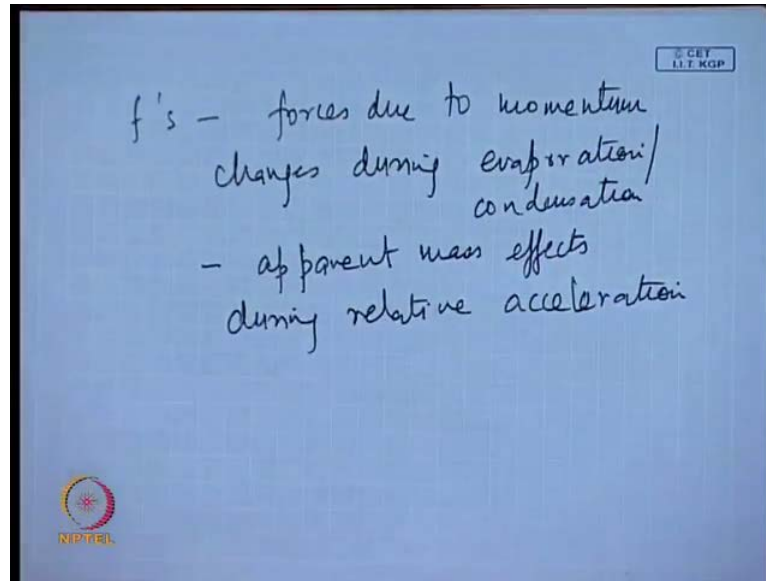 © CET
I.I.T. KGP
f's - forces due to momentum
changes during evaporation/
condensation
- apparent mass effects
during relative acceleration
NPTEL